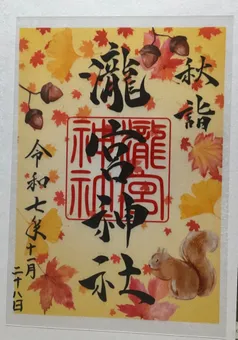 秋詣
瀧宮神社
瀧宮神社
令和七年十一月
二十八日